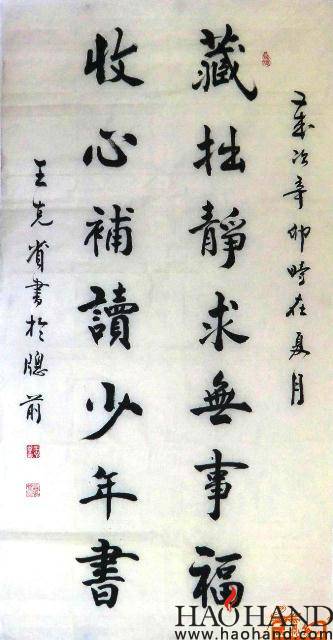 歲次辛卯時在夏月
藏拙靜求無事福
收心補讀少年書
王克省書於牕前
HAOHAND
www.haohand.com